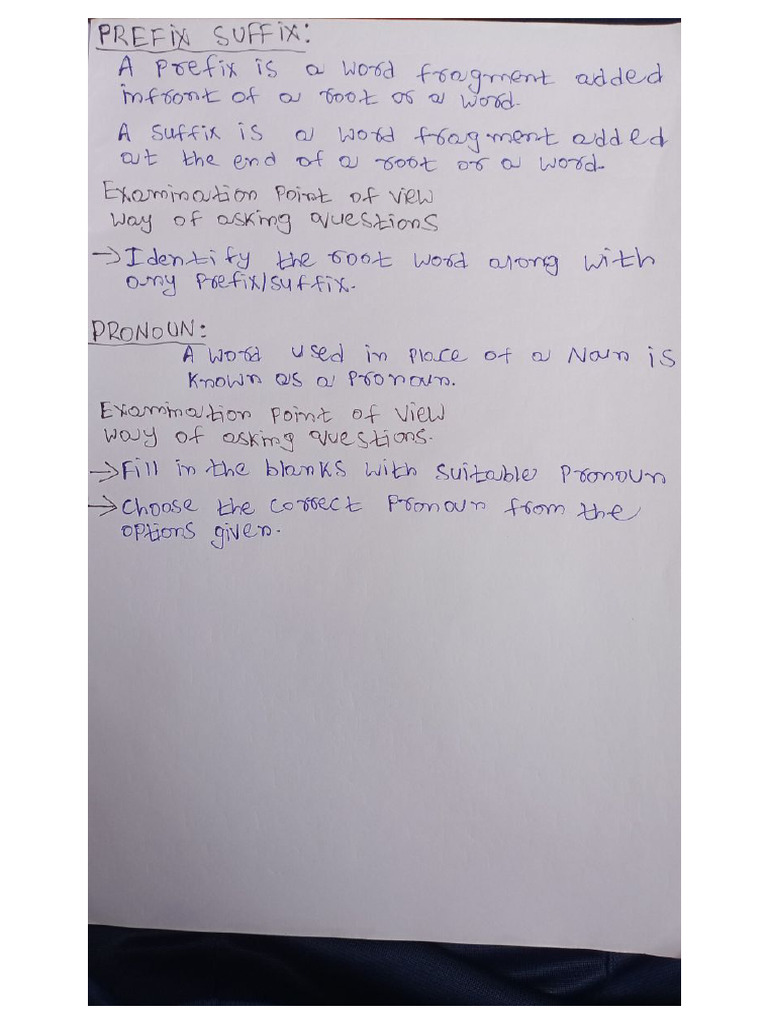 PREFIX SUFFIX:
A Prefix is a word fragment added
infront of a root or a word.
A Suffix is a word fragment added
at the end of a root or a word.
Examination Point of view
way of asking questions
→ Identify the root word along with
any Prefix/suffix.
PRONOUN:
A word used in place of a Noun is
known as a Pronoun.
Examination Point of view
way of asking questions.
→ Fill in the blanks with suitable Pronoun
→ Choose the correct Pronoun from the
options given.